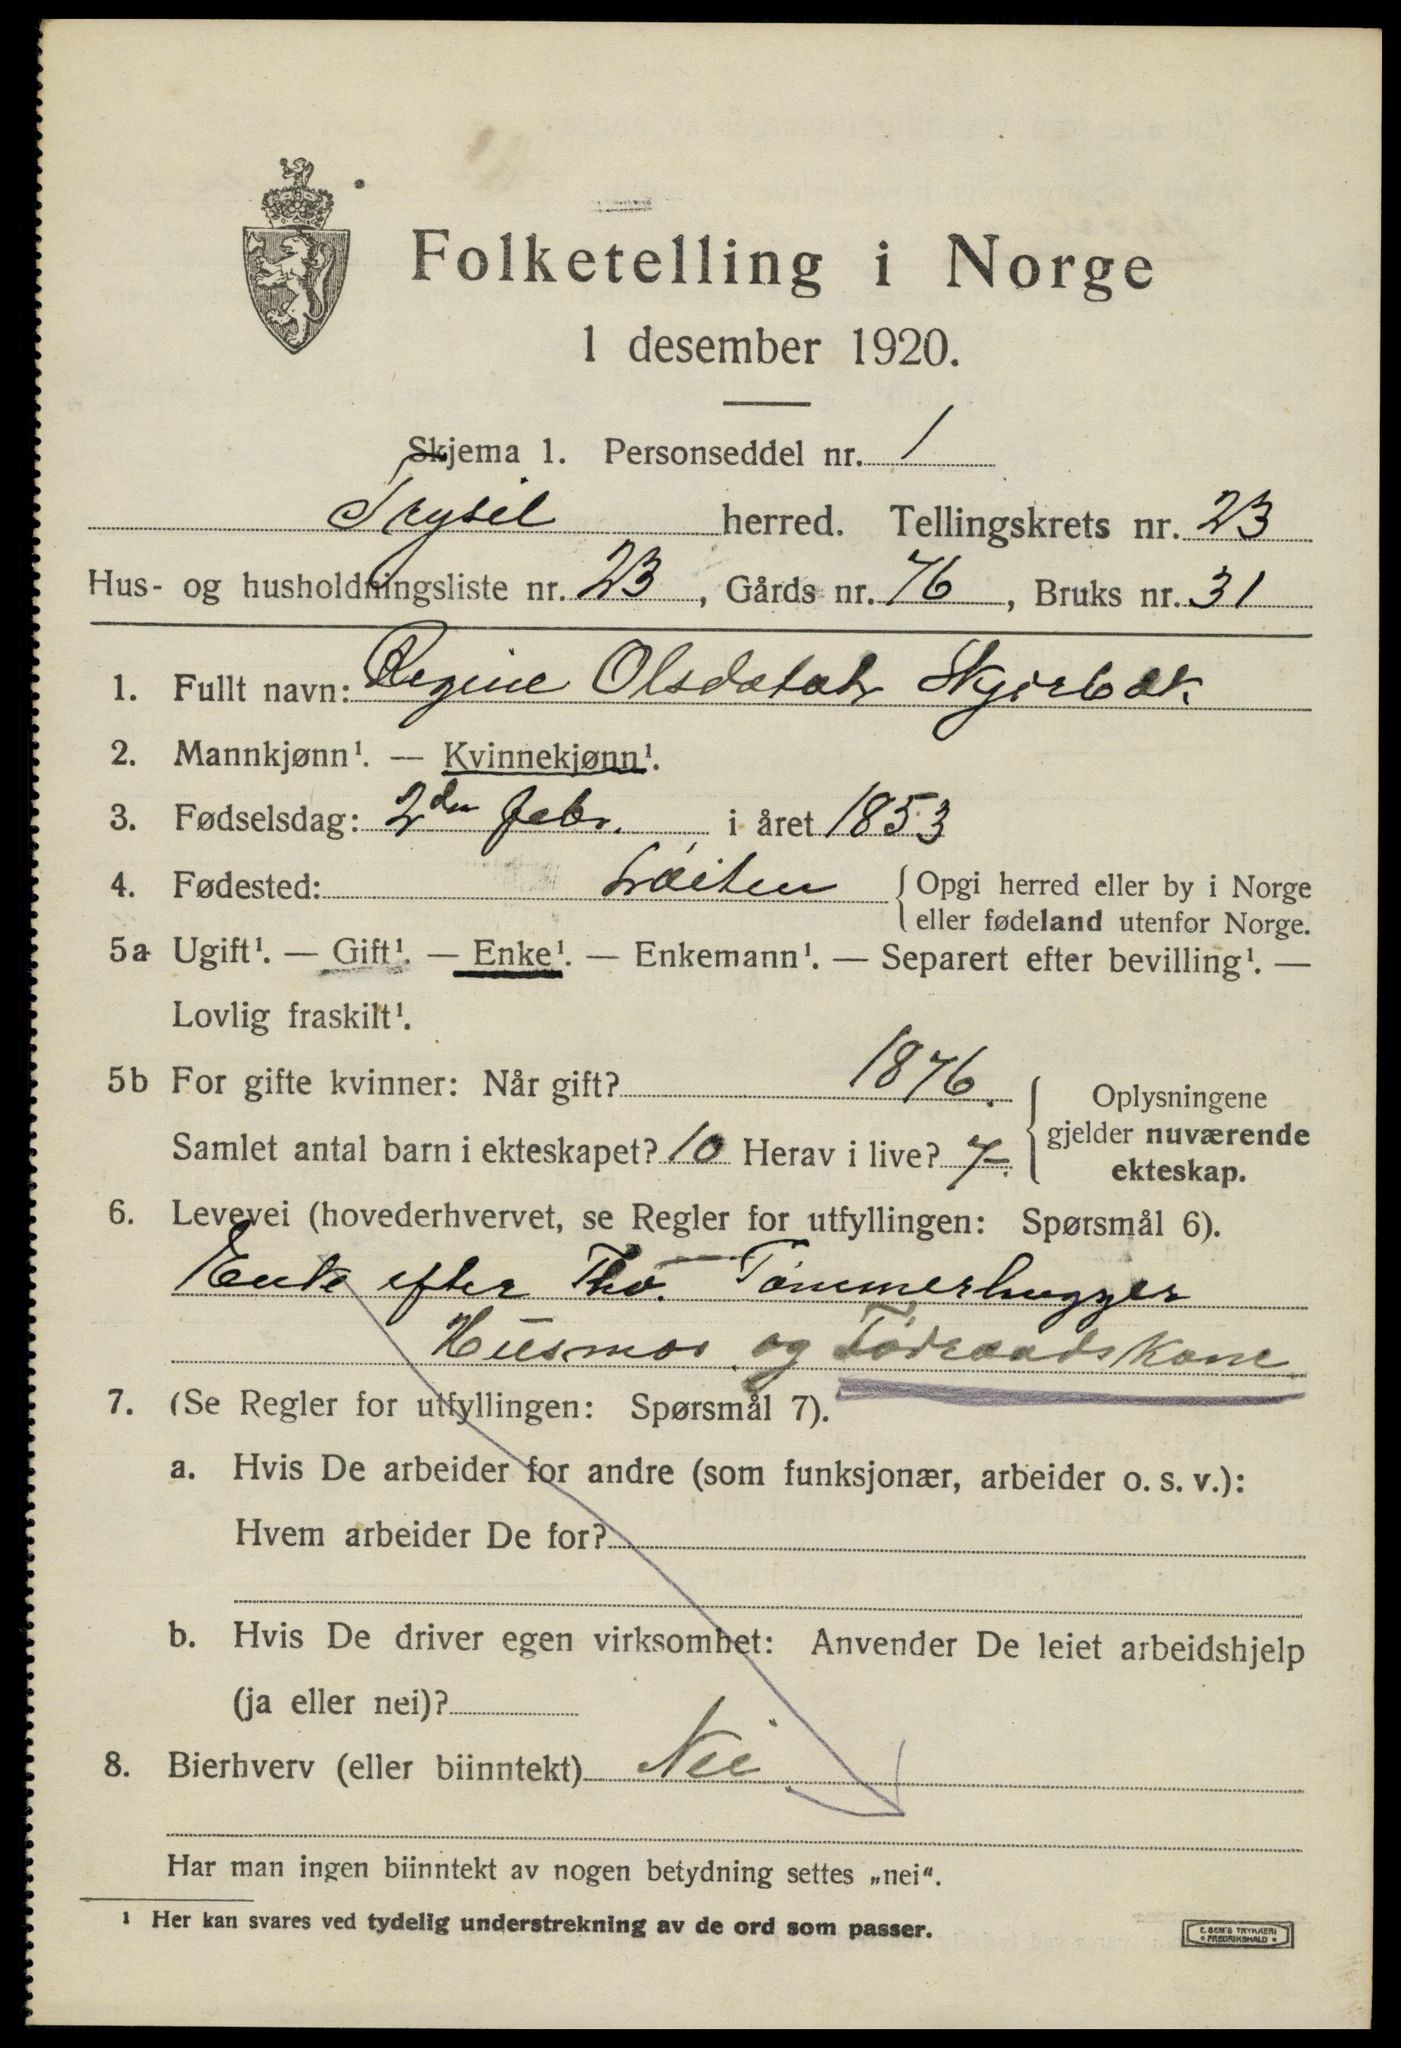 Folketelling i Norge
1 desember 1920.
Skjema 1. Personseddel nr. 1
Trysil herred. Tellingskrets nr. 23
Hus- og husholdningsliste nr. 23, Gårds nr. 76, Bruks nr. 31
1. Fullt navn: Regine Olsdatatr Skjerbæk
2. Mannkjønn¹. — Kvinnekjønn¹.
3. Fødselsdag: 2den febr. i året 1853
4. Fødested: Løiten { Opgi herred eller by i Norge
eller fødeland utenfor Norge.
5a Ugift¹. — Gift¹. — Enke¹. — Enkemann¹. — Separert efter bevilling¹. —
Lovlig fraskilt¹.
5b For gifte kvinner: Når gift? 1876.
Samlet antal barn i ekteskapet? 10 Herav i live? 7.
Oplysningene
gjelder nuværende
ekteskap.
6. Levevei (hovederhvervet, se Regler for utfyllingen: Spørsmål 6).
Enke efter Thv. Tømmerhugger
Husmor og Föderaads Kone
7. (Se Regler for utfyllingen: Spørsmål 7).
a. Hvis De arbeider for andre (som funksjonær, arbeider o. s. v.):
Hvem arbeider De for?
b. Hvis De driver egen virksomhet: Anvender De leiet arbeidshjelp
(ja eller nei)?
8. Bierhverv (eller biinntekt) Nei
Har man ingen biinntekt av nogen betydning settes „nei".
¹ Her kan svares ved tydelig understrekning av de ord som passer.
E. SEM'S TRYKKERI
• FREDRIKSHALD •